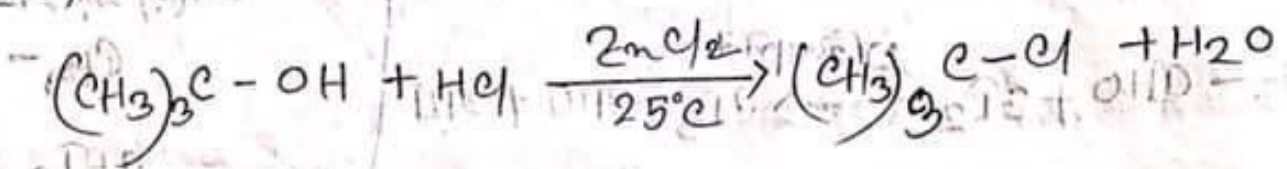 (CH3)3C - OH + HCl \xrightarrow[25°C]{ZnCl2} (CH3)3C-Cl + H2O